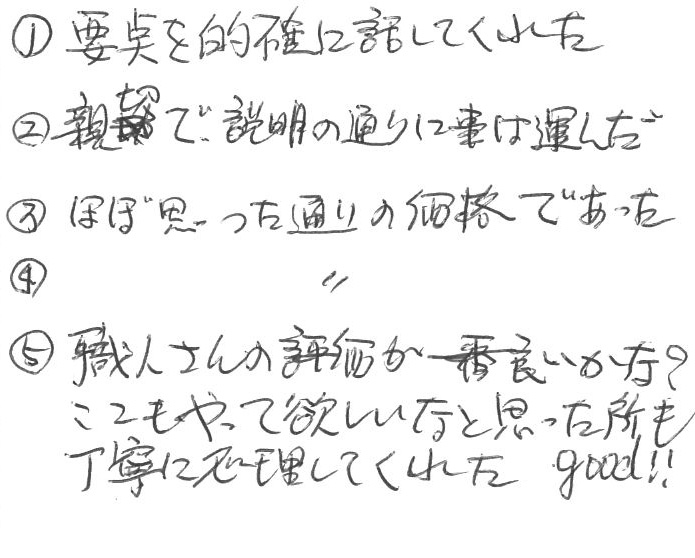 ① 要点を的確に話してくれた
② 親切で説明の通りに事は運んだ
③ ほぼ思った通りの価格であった
④ 〃
⑤ 職人さんの評価が一番良いかな?
ここもやって欲しいなと思った所も
丁寧に処理してくれた good!!